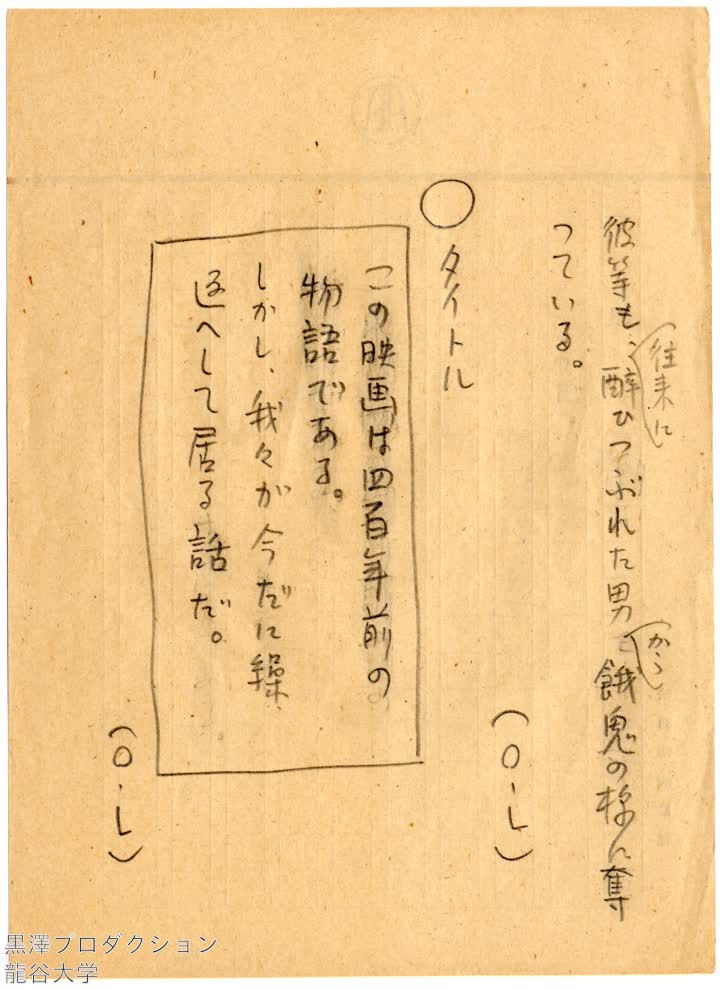 彼等も、往来に酔ひつぶれた男から餓鬼の様に奪
つている。
(O・L)
○ タイトル
この映画は四百年前の
物語である。
しかし、我々が今だに繰
返へして居る話だ。
(O・L)
黒澤プロダクション
龍谷大学